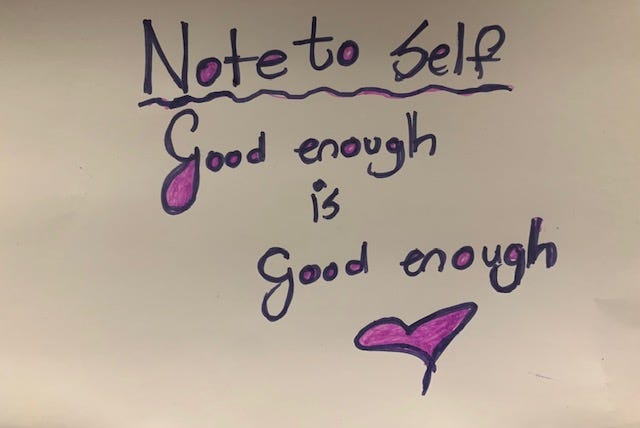 Note to Self
Good enough
is
Good enough